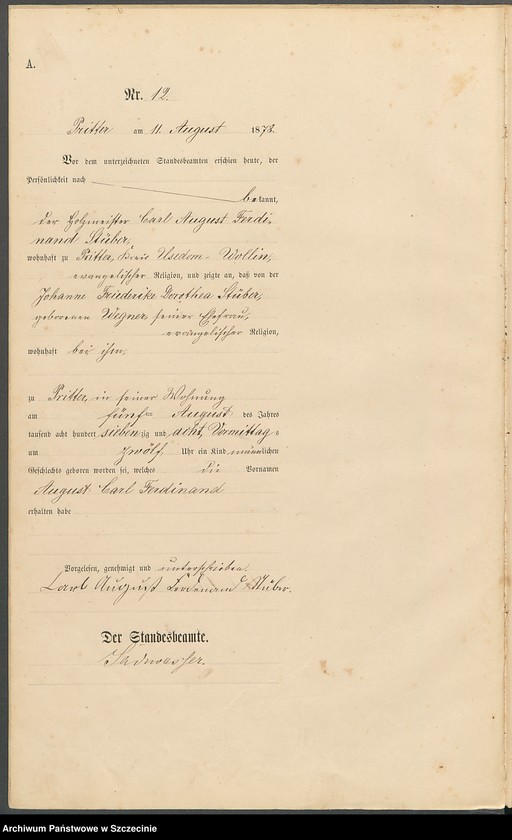 A.
Nr. 12.
Pritter am 11. August 1878.
Vor dem unterzeichneten Standesbeamten erschien heute, der
Persönlichkeit nach
bekannt,
der Holzmeister Carl August Ferdi,
nand Stüber,
wohnhaft zu Pritter, Kreis Usedom-Wollin,
evangelischer Religion, und zeigte an, daß von der
Johanne Friederike Dorothea Stüber,
geborenen Wegner, seiner Ehefrau,
evangelischer Religion,
wohnhaft bei ihm,
zu Pritter, in seiner Wohnung
am fünften August des Jahres
tausend acht hundert siebenzig und acht, Vormittags
um zwölf Uhr ein Kind männlichen
Geschlechts geboren worden sei, welches die Vornamen
August Carl Ferdinand
erhalten habe
Vorgelesen, genehmigt und unterschrieben.
Carl August Stüber.
Der Standesbeamte.
Archiwum Państwowe w Szczecinie